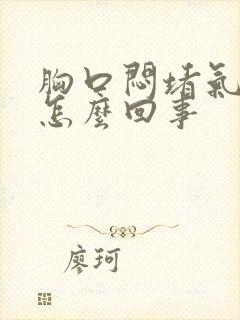 胸口悶堵氣
怎麼回事
廖珂